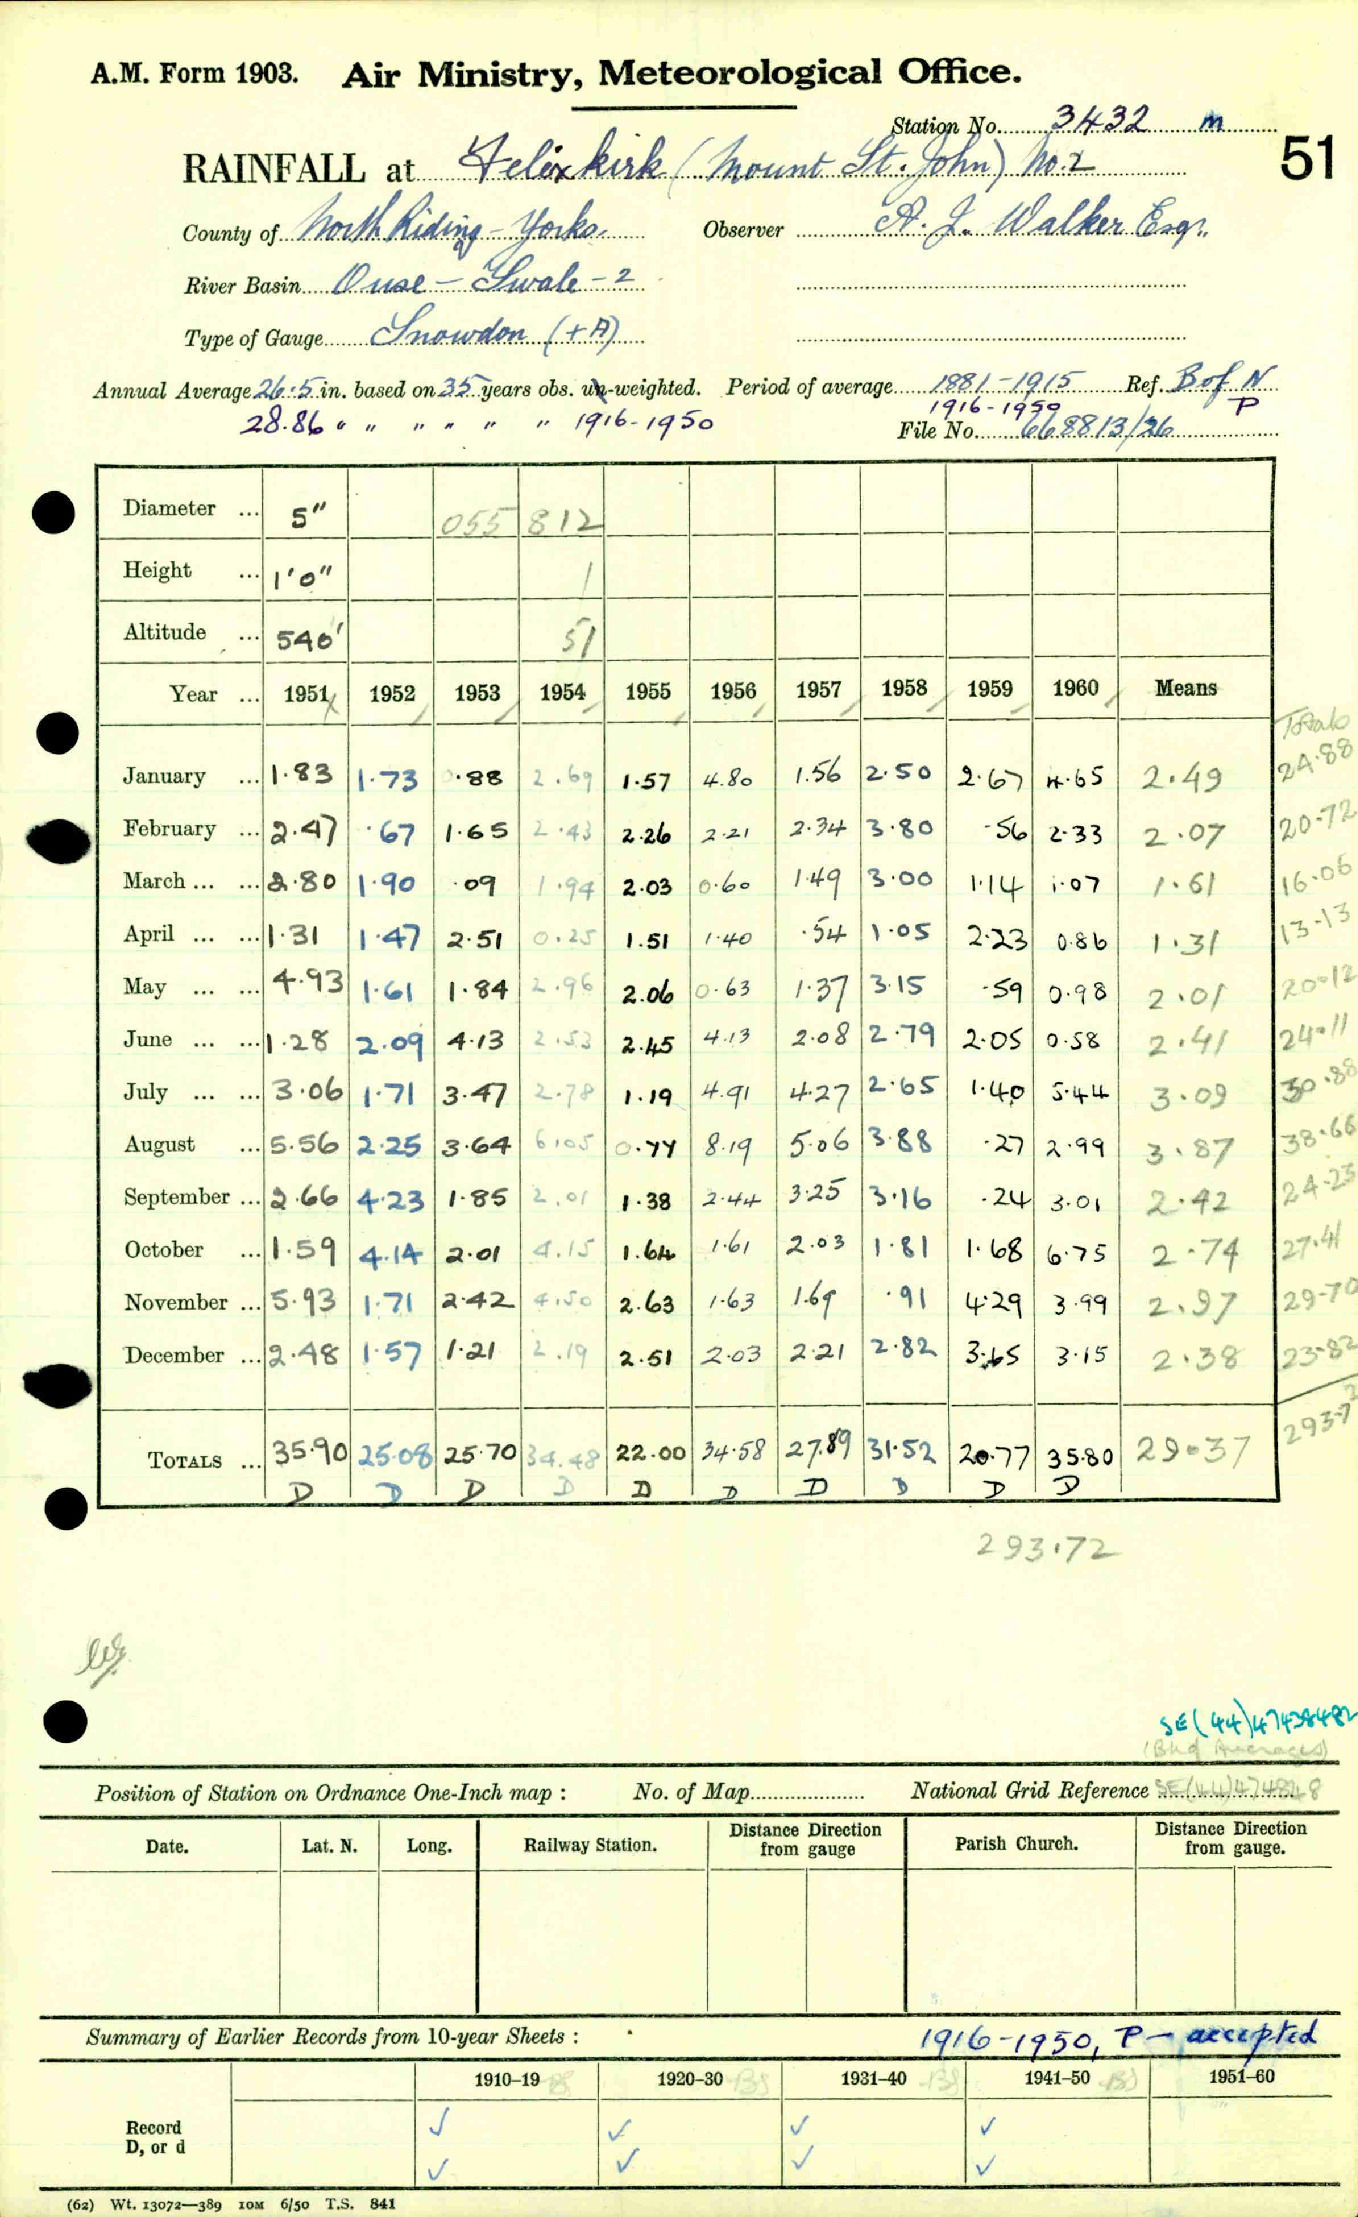 A.M. Form 1903. Air Ministry, Meteorological Office.
Station No. 3432 m
51
RAINFALL at Felixkirk (Mount St. John) No.2
County of North Riding - Yorks. Observer A. J. Walker Esqr.
River Basin Ouse - Swale - 2
Type of Gauge Snowdon (+A)
Annual Average 26.5 in. based on 35 years obs. un-weighted. Period of average 1881-1915 Ref. B of N
28.86 " " " " " " 1916-1950 1916-1950 P
File No. 668813/26
Diameter ... 5" 055 812
Height ... 1'0" 1
Altitude ... 540' 51
Year ... 1951 1952 1953 1954 1955 1956 1957 1958 1959 1960 Means Totals
January ... 1.83 1.73 0.88 2.69 1.57 4.80 1.56 2.50 2.67 4.65 2.49 24.88
February ... 2.47 .67 1.65 2.43 2.26 2.21 2.34 3.80 .56 2.33 2.07 20.72
March ... ... 2.80 1.90 .09 1.94 2.03 0.60 1.49 3.00 1.14 1.07 1.61 16.06
April ... ... 1.31 1.47 2.51 0.25 1.51 1.40 .54 1.05 2.23 0.86 1.31 13.13
May ... ... 4.93 1.61 1.84 2.96 2.06 0.63 1.37 3.15 .59 0.98 2.01 20.12
June ... ... 1.28 2.09 4.13 2.53 2.45 4.13 2.08 2.79 2.05 0.58 2.41 24.11
July ... ... 3.06 1.71 3.47 2.78 1.19 4.91 4.27 2.65 1.40 5.44 3.09 30.88
August ... 5.56 2.25 3.64 6.05 0.77 8.19 5.06 3.88 .27 2.99 3.87 38.66
September ... 2.66 4.23 1.85 2.01 1.38 2.44 3.25 3.16 .24 3.01 2.42 24.23
October ... 1.59 4.14 2.01 4.15 1.64 1.61 2.03 1.81 1.68 6.75 2.74 27.41
November ... 5.93 1.71 2.42 4.50 2.63 1.63 1.69 .91 4.29 3.99 2.97 29.70
December ... 2.48 1.57 1.21 2.19 2.51 2.03 2.21 2.82 3.65 3.15 2.38 23.82
TOTALS ... 35.90 25.08 25.70 34.48 22.00 34.58 27.89 31.52 20.77 35.80 29.37 293.72
D D D D D D D D D D
293.72
SE(44)47438482
(Bkd Averages)
Position of Station on Ordnance One-Inch map : No. of Map National Grid Reference SE(44)474848
Date. Lat. N. Long. Railway Station. Distance from gauge Direction Parish Church. Distance Direction from gauge.
Summary of Earlier Records from 10-year Sheets : 1916-1950, P - accepted
1910–19 BS 1920–30 BS 1931–40 BS 1941–50 BS 1951–60
Record ✓ ✓ ✓ ✓
D, or d ✓ ✓ ✓ ✓
(62) Wt. 13072—389 10M 6/50 T.S. 841